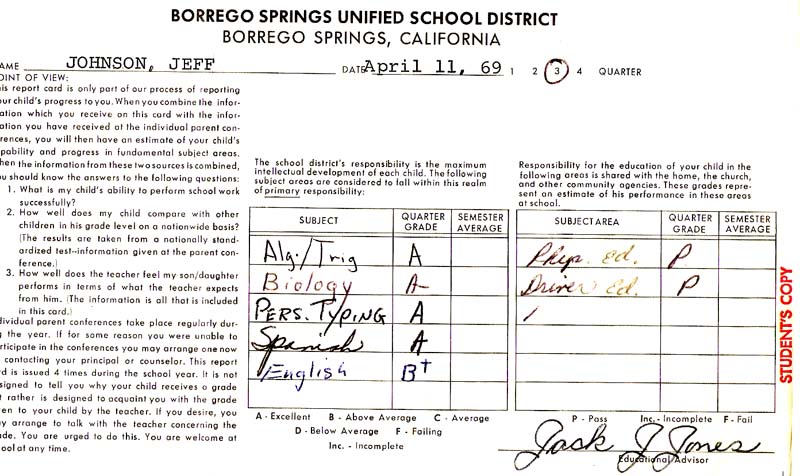 BORREGO SPRINGS UNIFIED SCHOOL DISTRICT
BORREGO SPRINGS, CALIFORNIA
AME JOHNSON, JEFF DATE April 11, 69 1 2 3 4 QUARTER
OINT OF VIEW:
is report card is only part of our process of reporting
ur child's progress to you. When you combine the infor-
ation which you receive on this card with the infor-
ation you have received at the individual parent con-
rences, you will then have an estimate of your child's
pability and progress in fundamental subject areas.
hen the information from these two sources is combined,
u should know the answers to the following questions:
1. What is my child's ability to perform school work
successfully?
2. How well does my child compare with other
children in his grade level on a nationwide basis?
(The results are taken from a nationally stand-
ardized test--information given at the parent con-
ference.)
3. How well does the teacher feel my son/daughter
performs in terms of what the teacher expects
from him. (The information is all that is included
in this card.)
dividual parent conferences take place regularly dur-
g the year. If for some reason you were unable to
rticipate in the conferences you may arrange one now
contacting your principal or counselor. This report
rd is issued 4 times during the school year. It is not
signed to tell you why your child receives a grade
t rather is designed to acquaint you with the grade
en to your child by the teacher. If you desire, you
y arrange to talk with the teacher concerning the
ade. You are urged to do this. You are welcome at
ool at any time.
The school district's responsibility is the maximum
intellectual development of each child. The following
subject areas are considered to fall within this realm
of primary responsibility:
SUBJECT QUARTER GRADE SEMESTER AVERAGE
Alg./Trig A
Biology A-
PERS. TYPING A
Spanish A
English B+
A - Excellent B - Above Average C - Average
D - Below Average F - Failing
Inc. - Incomplete
Responsibility for the education of your child in the
following areas is shared with the home, the church,
and other community agencies. These grades repre-
sent an estimate of his performance in these areas
at school.
SUBJECT AREA QUARTER GRADE SEMESTER AVERAGE
Phys. Ed. P
Driver Ed. P
P - Pass Inc. - Incomplete F - Fail
Jack J Jones
Educational Advisor
STUDENT'S COPY